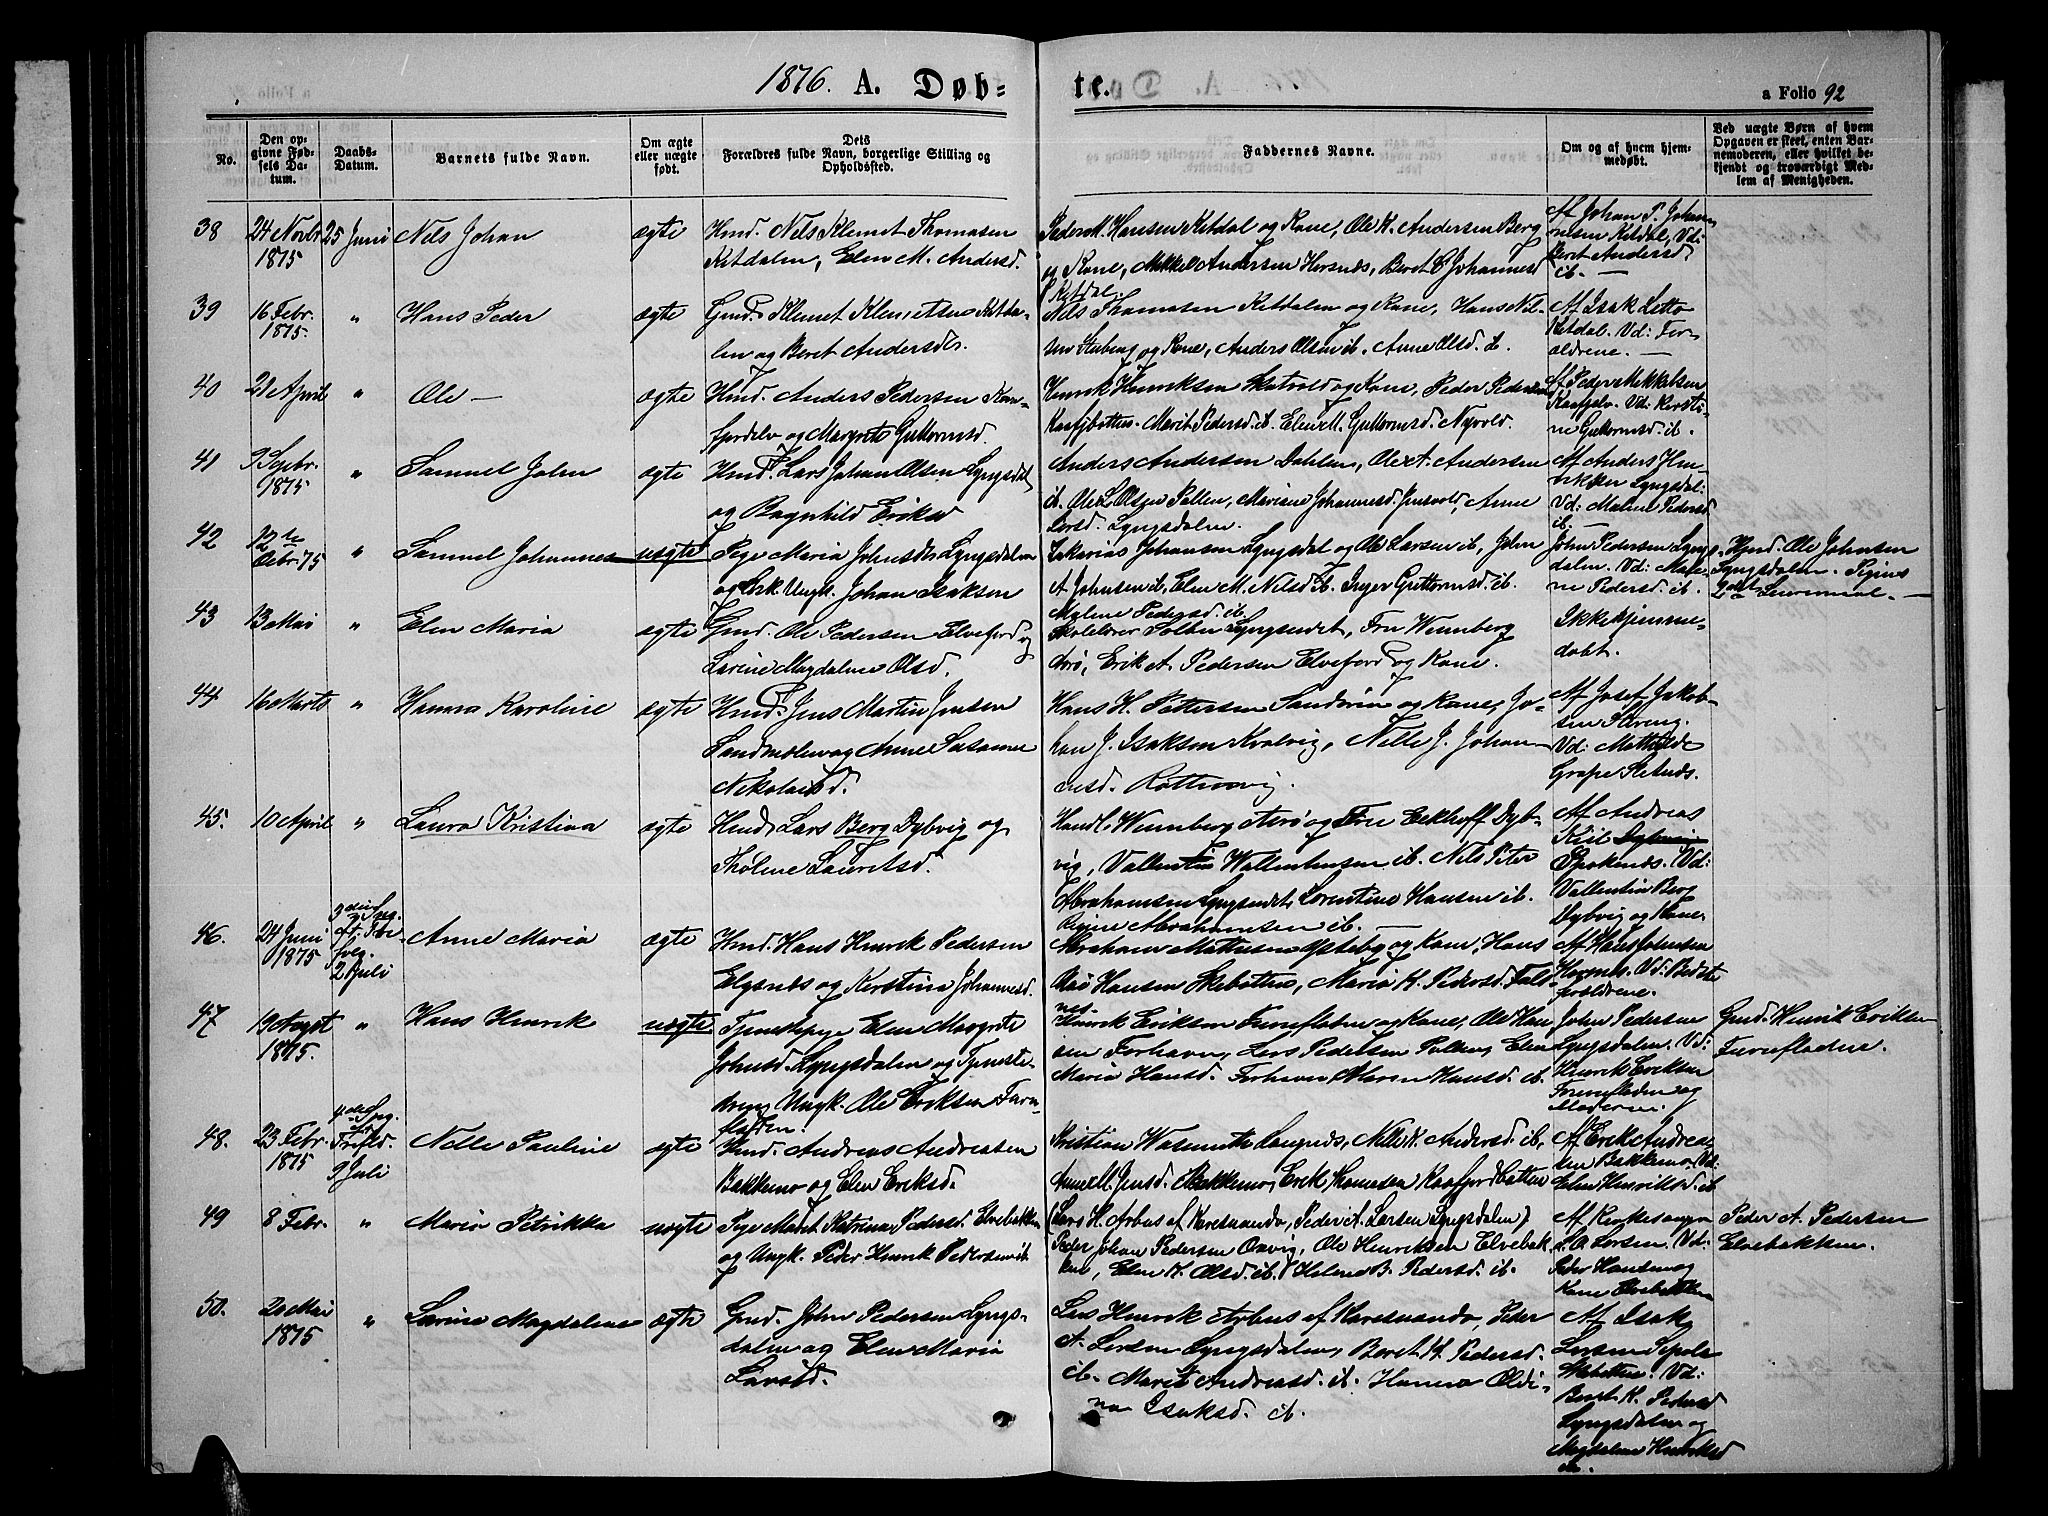 1876. A. Døb- te. a Folio 92
No.
Den opgivne Fødsels Datum.
Daabs-Datum.
Barnets fulde Navn.
Om ægte eller uægte født.
Dets Forældres fulde Navn, borgerlige Stilling og Opholdssted.
Faddernes Navne.
Om og af hvem hjemmedøbt.
Ved uægte Børn af hvem Opgaven er skeet, enten Barnemoderen, eller hvilket bekjendt og troværdigt Medlem af Menigheden.
38 24 Novbr 25 Juni Nils Johan ægte Hmd. Nils Klemet Thomasen
1875 Kitdalen, Elen M. Andersd.
Peder M. Hansen Kitdal og Kone, Ole K. Andersen Berg
og Kone, Mikkel Andersen Horsnæs, Beret C Johannesd
Kitdal.
Af Johan P. Johan-
nesen Kitdal, Vd:
Beret Andersd
ib. —
39 16 Febr. " Hans Peder ægte Gmd. Klemet Klemetsen Kitda-
1875. len og Beret Andersdtr.
Nils Thomasen Kitdalen og Kone, Hans Nil-
sen Stuberg og Kone, Anders Olsen ib. Anne Olsd. ib.
Af Isak Letto
Kitdal. Vd: For-
ældrene. —
40 21 April " Ole — ægte Hmd. Anders Pedersen Kaa-
fjordelv og Margrete Guttormsd.
Henrik Henriksen Skatvold og Kone, Peder Pedersen
Kaafjbotten. Marit Pedersd. ib. Elen M. Guttormsd. Nyvold.
Af Peder Mikkelsen
Kaafjelv. Vd: Kersti-
ne Guttormsd. ib.
41 9 Sepbr. " Samuel John ægte Hmd. Lars Johan Olsen Lyngsdal
1875 og Ragnhild Eriksd
Anders Andersen Dahlen, Ole A. Andersen
ib. Ole L. Olsen Pollen, Mariane Johannesd. Jensvold, Anne
Larsd. Lyngsdalen.
Af Anders Hen-
riksen Lyngsdal:
Vd: Malene Pedersd
ib. —
42 12te " Samuel Johannes uægte Pige Maria Johnsdtr Lyngsdalen
Octbr. 75 og Enk. Ungk. Johan Isaksen
Zakarias Johansen Lyngsdal og Ole Larsen ib, John
A Johnsen ib, Elen M. Nilsd ib. Inger Guttormsd. ib.
Malene Pedersd. ib.
John Pedersen Lyngs-
dalen. Vd: Male-
ne Pedersd. ib.
Hmd. Ole Johnsen
Lyngsdalen. Pigens
2det Leiermaal. —
43 13 Mai " Elen Maria ægte Gmd. Ole Pedersen Elvefjord og
Larine Magdalene Olsd.
Skolelærer Lyngseidet, Fru Wennberg
Aarø, Erik A. Pedersen Elvefjord og Kone.
Ikke hjemme-
døbt.
44 16 Marts " Hanna Karoline ægte Hmd. Jens Martin Jensen
Sandmælen og Anne Susanne
Nikolaisd.
Hans H. Pettersen Sandøren og Kone, Jo-
han J. Isaksen Kvalvig, Nille J. Johan-
nesd. Rottenvig.
Af Josef Jakob-
sen Streng.
Vd: Mathilde
Grape Sletnæs.
45. 10 April " Laura Kristina ægte Hmd. Lars Berg Dybvig og
Tholene Lauritsd.
Handl: Wennberg Aarø og Frue Eckhoff Dyb-
vig, Vallentin Wallenhansen ib. Nils Peter
Abrahamsen Lyngseidet, Lorentine Hansen ib.
Regine Abrahamsen ib. —
Af Andreas
Kiil Dybvig
Spokenæs. Vd:
Vallentin Berg
Dybvig og Kone.
46. 24 Juni 3die Søg. Anne Maria ægte Hmd. Hans Henrik Pedersen
1875 2 Juli Elgsnæs og Kerstina Johannesd.
Abraham Mathisen Ytteby og Kone, Hans
Hansen Skibotten, Maria K. Pedersd. Fals-
næs.
Af Hans Johnsen
Hornæs. Vd: Bedste-
forældrene.
47 19 August " Hans Henrik uægte Tjenestepige Elen Margrete
1875. Johnsd. Lyngsdalen og Tjeneste-
dreng Ungk. Ole Eriksen Furu-
flaten.
Henrik Eriksen Furuflaten og Kone, Ole Han-
sen Forhavn, Lars Pedersen Pollen, Elen
Maria Hansd. Forhavn, Maren Hansd. ib.
John Pedersen
Lyngsdalen. Vd:
Henrik Eriksen
Furuefladen og
Moderen.
Gmd. Henrik Eriksen
Furuefladen.
48. 23 Febr. 4de Søg. Nelle Pauline ægte Hmd. Andreas Andreasen
1875 Trefld. 9 Juli Bakkemo og Elen Eriksd.
Kristian Wasmuth Langnæs, Nille K. Andersd. ib,
Anne M. Jensd. Bakkemo, Erik Hansen Kaafjordbotten
Af Erik Andrea-
sen Bakkemo. Vd:
Elen Henriksd. ib
49 8 Febr. " Maria Petrikka uægte Pige Marit Katrina Pedersd. Elvebakken
og Ungk. Peder Henrik Pedersen ib
(Lars H. Arbus af Karesuando, Peder A. Larsen Lyngsdalen)
Peder Johan Pedersen Oxvig, Ole Henriksen Elvebak-
ken, Elen K. Olsd. ib. Helene B. Pedersd. ib.
Af Kirkesanger
L. O. Larsen. Vd:
Peder Hansen og
Kone Elvebakken
Peder A. Pedersen
Elvebakken.
50. 20 Mai " Larine Magdalene ægte Gmd. John Pedersen Lyngs-
1875 dalen og Elen Maria
Larsd.
Lars Henrik Arbus af Karesuando, Peder
A. Larsen Lyngsdalen, Beret K. Pedersd.
ib. Marit Andreasd. ib. Hanna Oldi-
na Isaksd. ib.
Af Isak
Larsen Sepola
Skibotten. Vd:
Beret K. Pedersd
Lyngsdalen og
Magdalene Henriksd
ib.